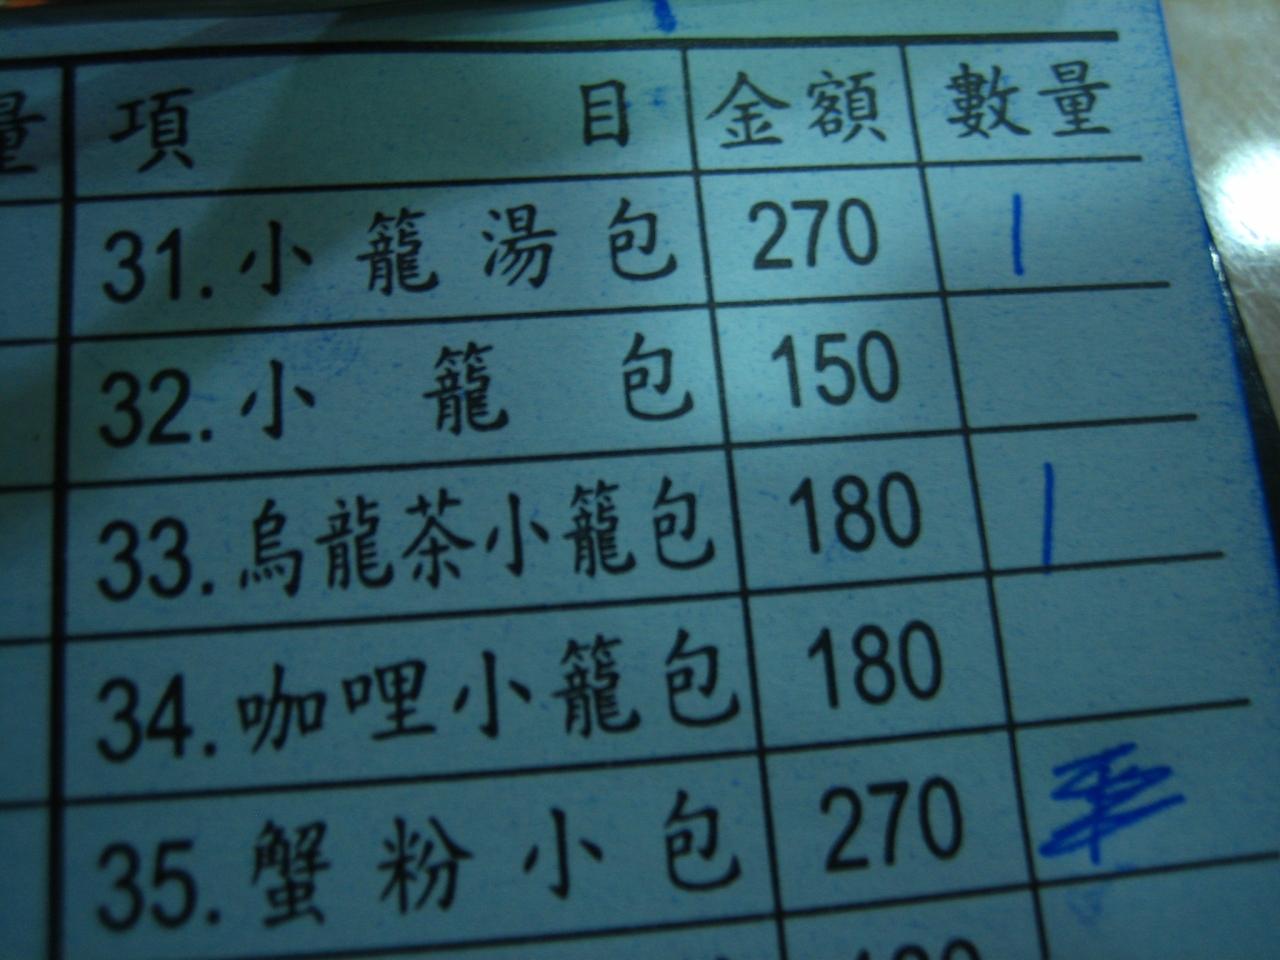 量 項目 金額 數量
31. 小籠湯包 270 1
32. 小籠包 150
33. 烏龍茶小籠包 180 1
34. 咖哩小籠包 180
35. 蟹粉小包 270